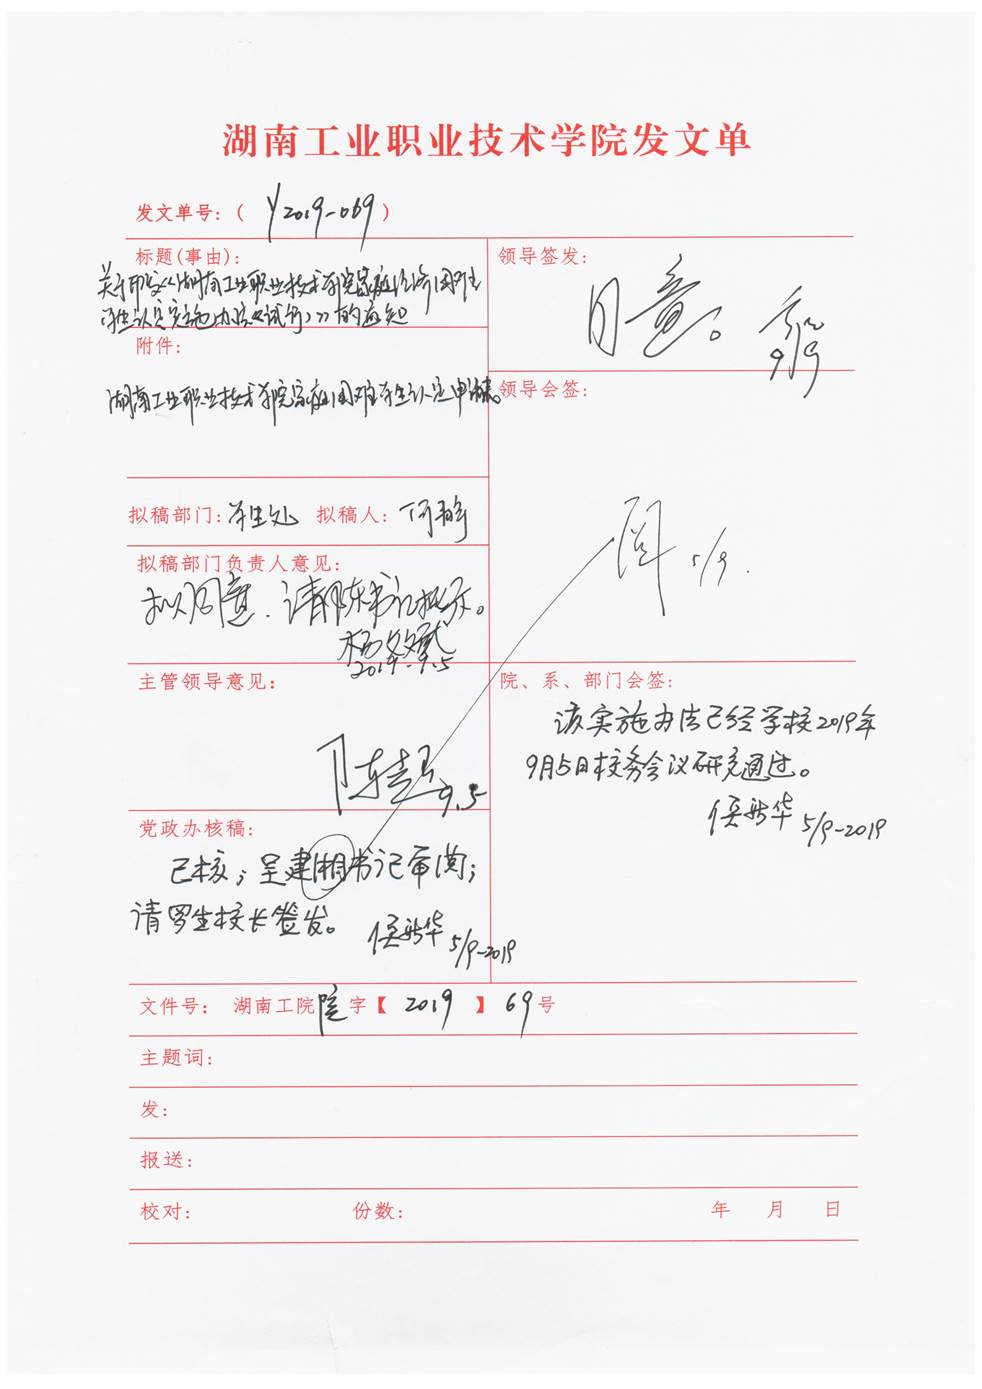 湖南工业职业技术学院发文单
发文单号:( Y2019-069 )
标题(事由):
关于印发《湖南工业职业技术学院家庭经济困难
学生认定实施办法《试行》》的通知
附件:
湖南工业职业技术学院家庭困难学生认定申请表。
拟稿部门: 学生处 拟稿人: 何
拟稿部门负责人意见:
拟同意,请陈书记批示。
杨
2019.9.5
主管领导意见:
陈
9.5
党政办核稿:
已核;呈建湘书记审阅;
请罗生校长签发。
侯新华 5/9-2019
领导签发:
同意。
9/9
领导会签:
阅 5/9.
院、系、部门会签:
该实施办法已经学校2019年
9月5日校务会议研究通过。
侯新华 5/9-2019
文件号: 湖南工院院字【 2019 】 69 号
主题词:
发:
报送:
校对: 份数: 年 月 日